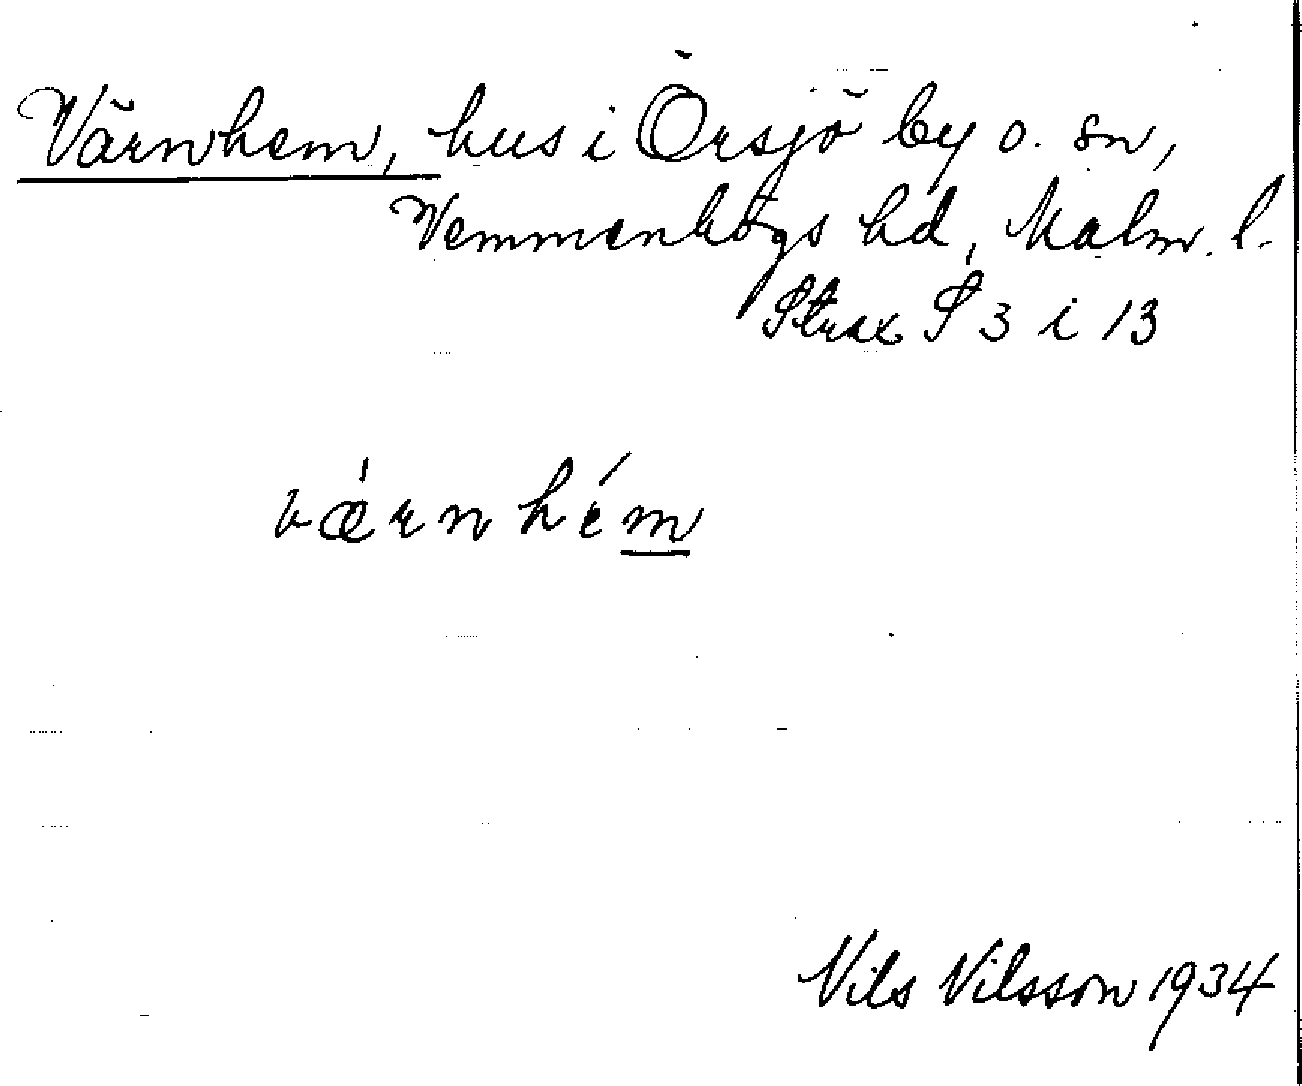 Värnhem, hus i Örsjö by o. sn,
Vemmenhögs hd, Malm. l.
Strax S 3 i 13
væ̀rnhém
Nils Nilsson 1934